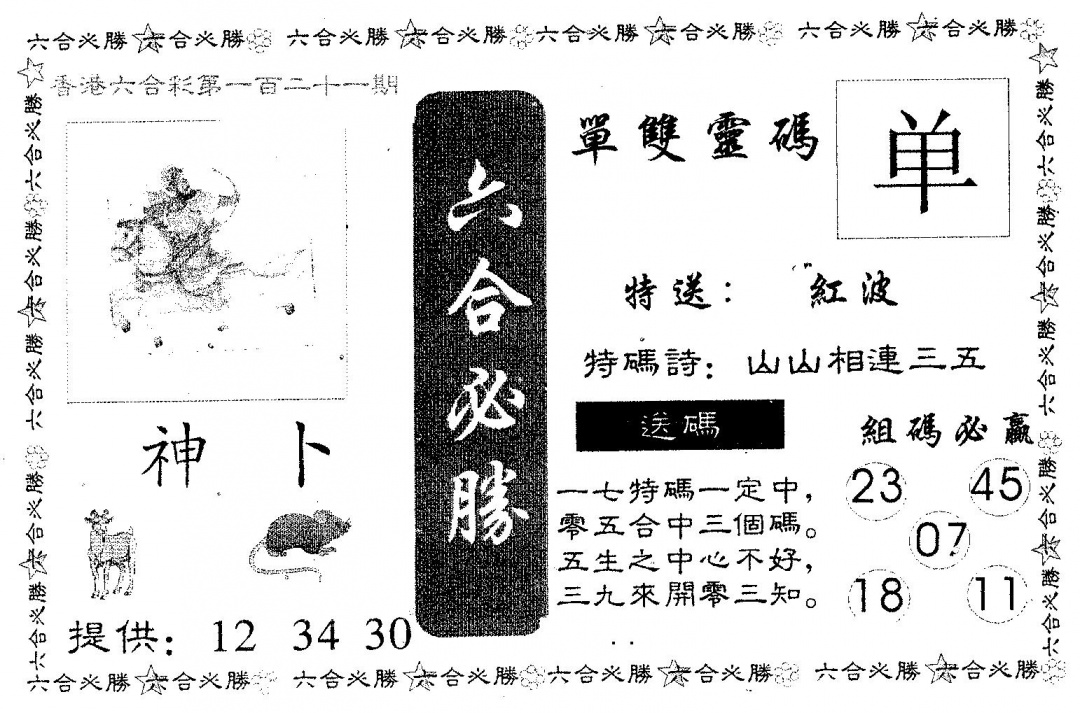 六合必勝 六合必勝 六合必勝 六合必勝 六合必勝 六合必勝 六合必勝 六合必勝
香港六合彩第一百二十一期
六合必勝
單雙靈碼
单
特送： 紅波
特碼詩：山山相連三五
送碼
一七特碼一定中，
零五合中三個碼。
五生之中心不好，
三九來開零三知。
組碼必贏
23 45
07
18 11
神 卜
提供： 12 34 30
六合必勝 六合必勝 六合必勝 六合必勝 六合必勝 六合必勝 六合必勝 六合必勝
六合必勝 六合必勝 六合必勝 六合必勝 六合必勝
六合必勝 六合必勝 六合必勝 六合必勝 六合必勝